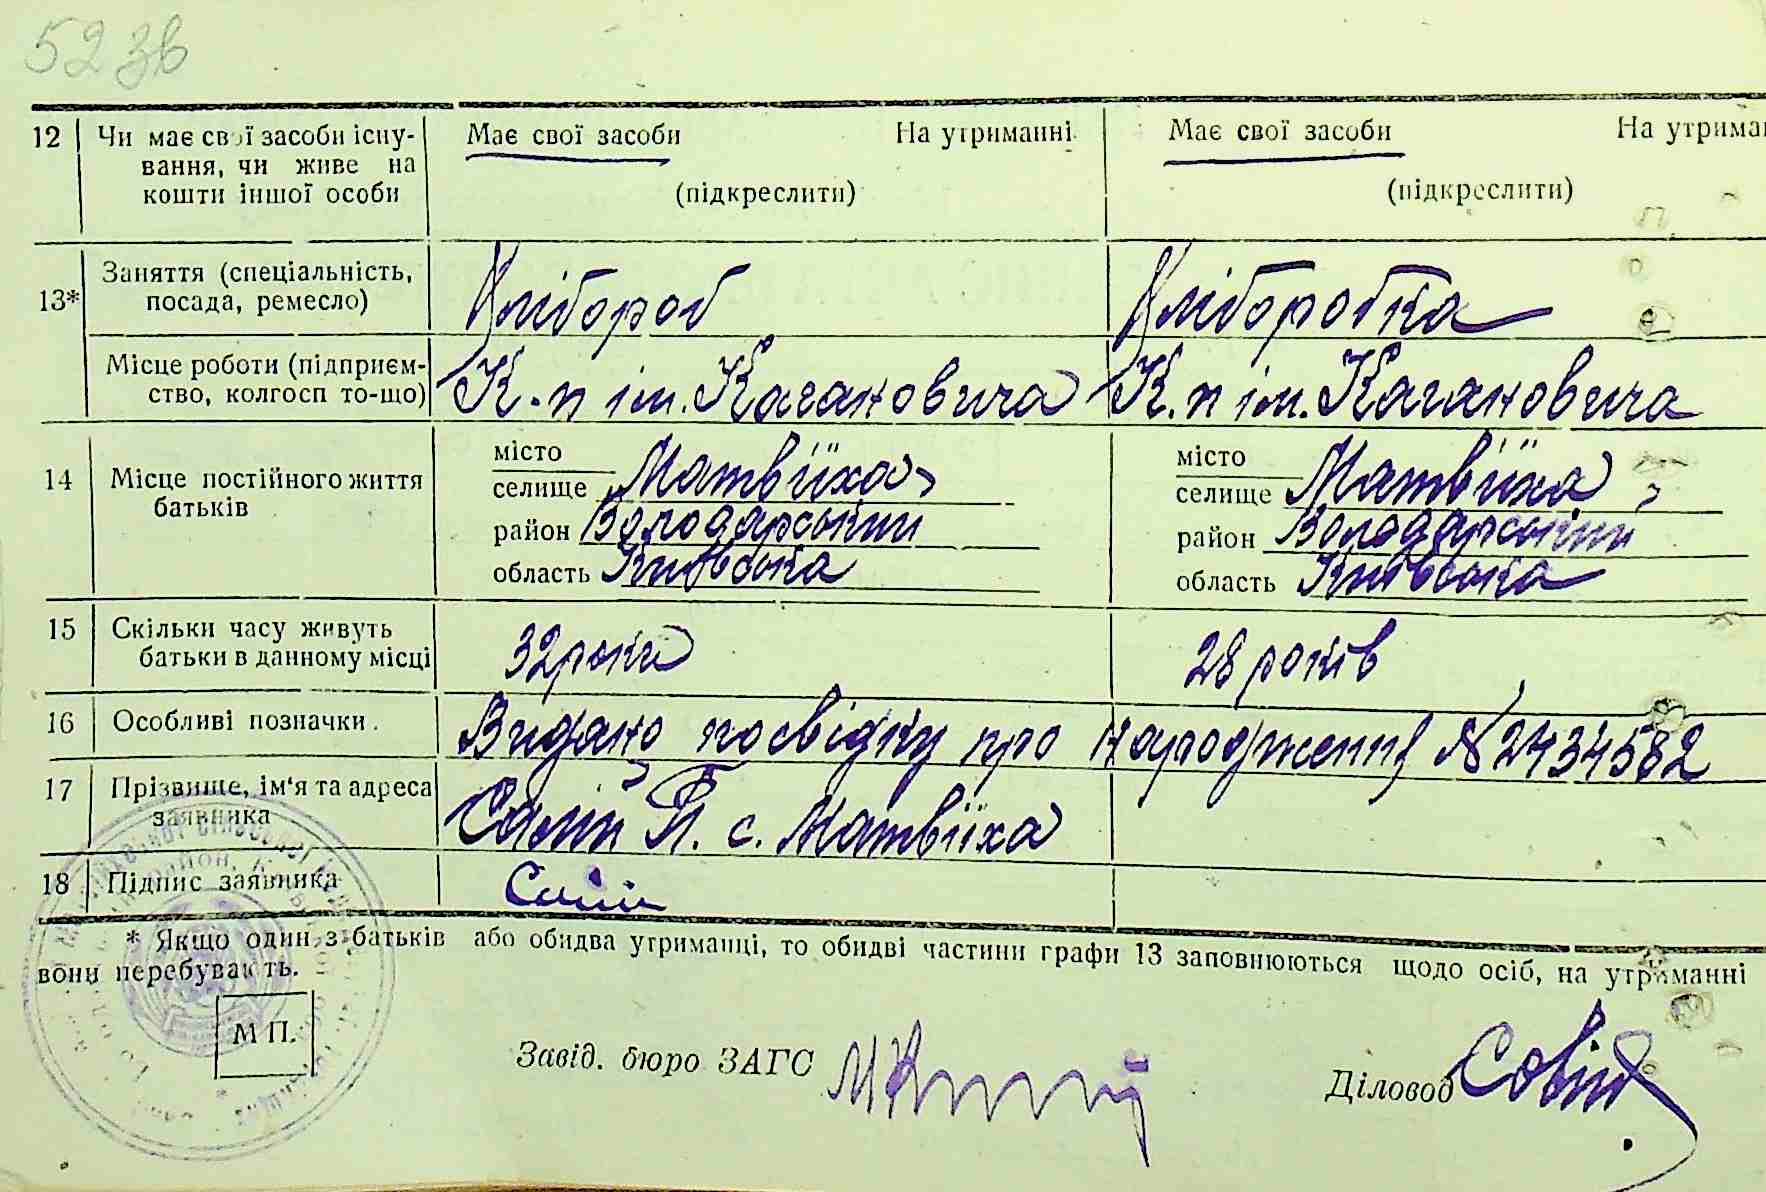 52 зв
12 Чи має свої засоби існу-
вання, чи живе на
кошти іншої особи
Має свої засоби На утриманні
(підкреслити)
Має свої засоби На утрима
(підкреслити)
13* Заняття (спеціальність,
посада, ремесло)
Хлібороб
Хліборобка
Місце роботи (підприєм-
ство, колгосп то-що)
К-п ім. Кагановича
К.п ім. Кагановича
14 Місце постійного життя
батьків
місто
селище Матвіїха
район Володарський
область Київська
місто
селище Матвіїха
район Володарський
область Київська
15 Скільки часу живуть
батьки в данному місці
32 роки
28 років
16 Особливі позначки.
Видано посвідку про народження №2434582
17 Прізвище, ім'я та адреса
заявника
Салій П. с. Матвіїха
18 Підпис заявника
Салій
* Якщо один з батьків або обидва утриманці, то обидві частини графи 13 заповнюються щодо осіб, на утриманні
вони перебувають.
М П.
Завід. бюро ЗАГС
Діловод